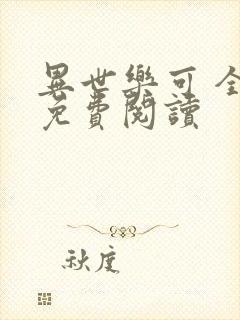 異世樂可全
免費閱讀
秋度